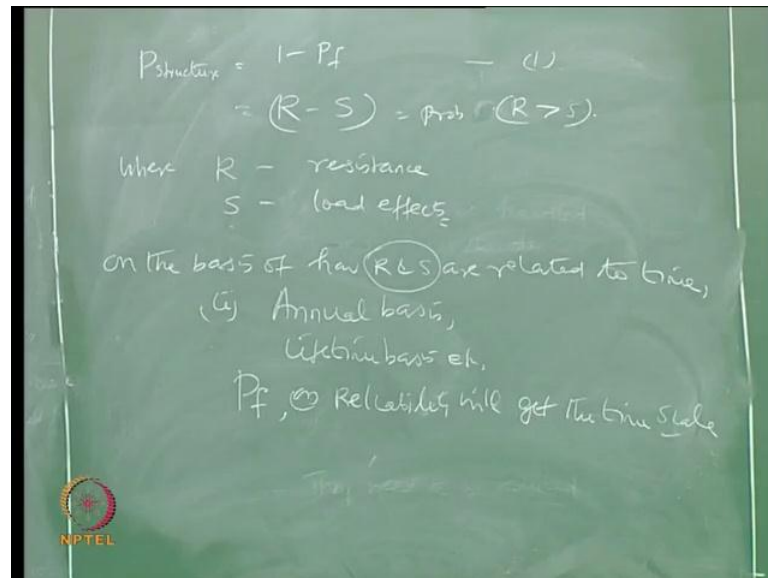 Pstructure = 1 - Pf — (1)
= (R - S) = prob (R > S).
Where R - resistance
S - load effects
on the basis of how R & S are related to time,
(i) Annual basis,
Lifetime basis etc,
Pf, or Reliability will get the time scale
NPTEL